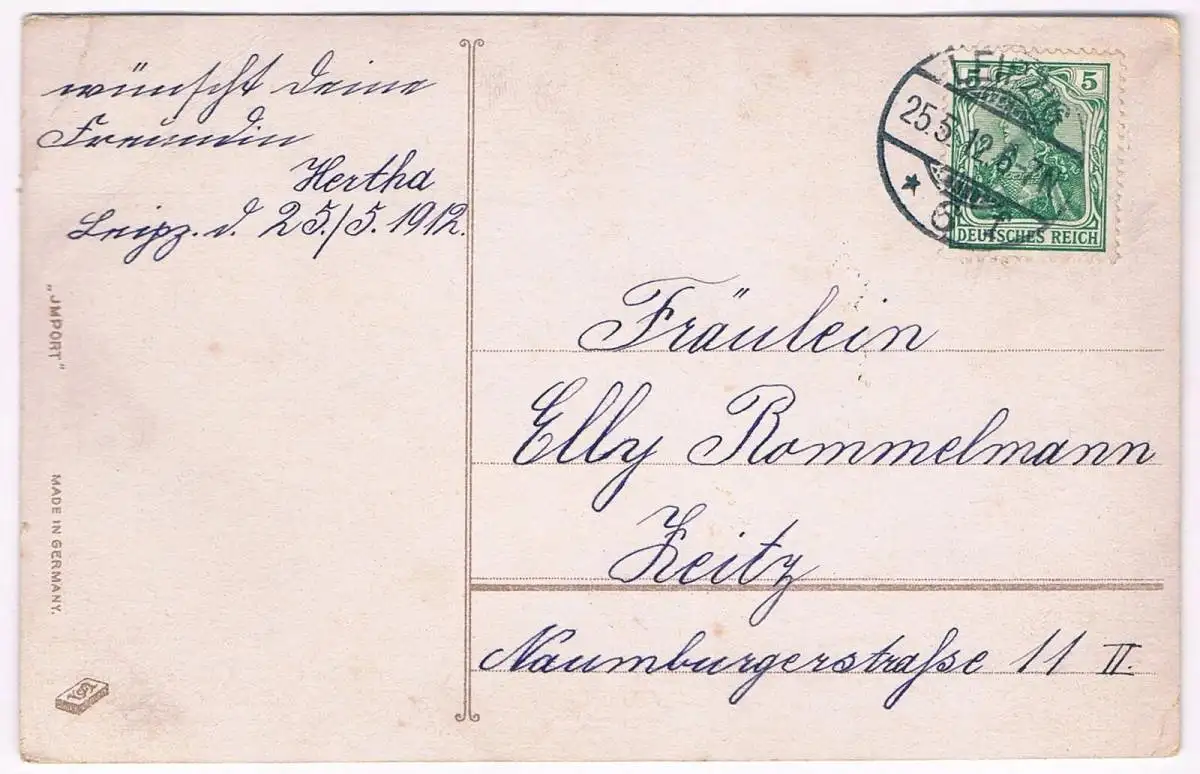 wünscht Deine
Freundin
Hertha
Leipz. d. 25./5. 1912.
„JMPORT"
MADE IN GERMANY.
LEIPZIG
25.5.12.6-7N.
* 6
5
DEUTSCHES REICH
Fräulein
Elly Rommelmann
Zeitz
Naumburgerstraße 11 II.